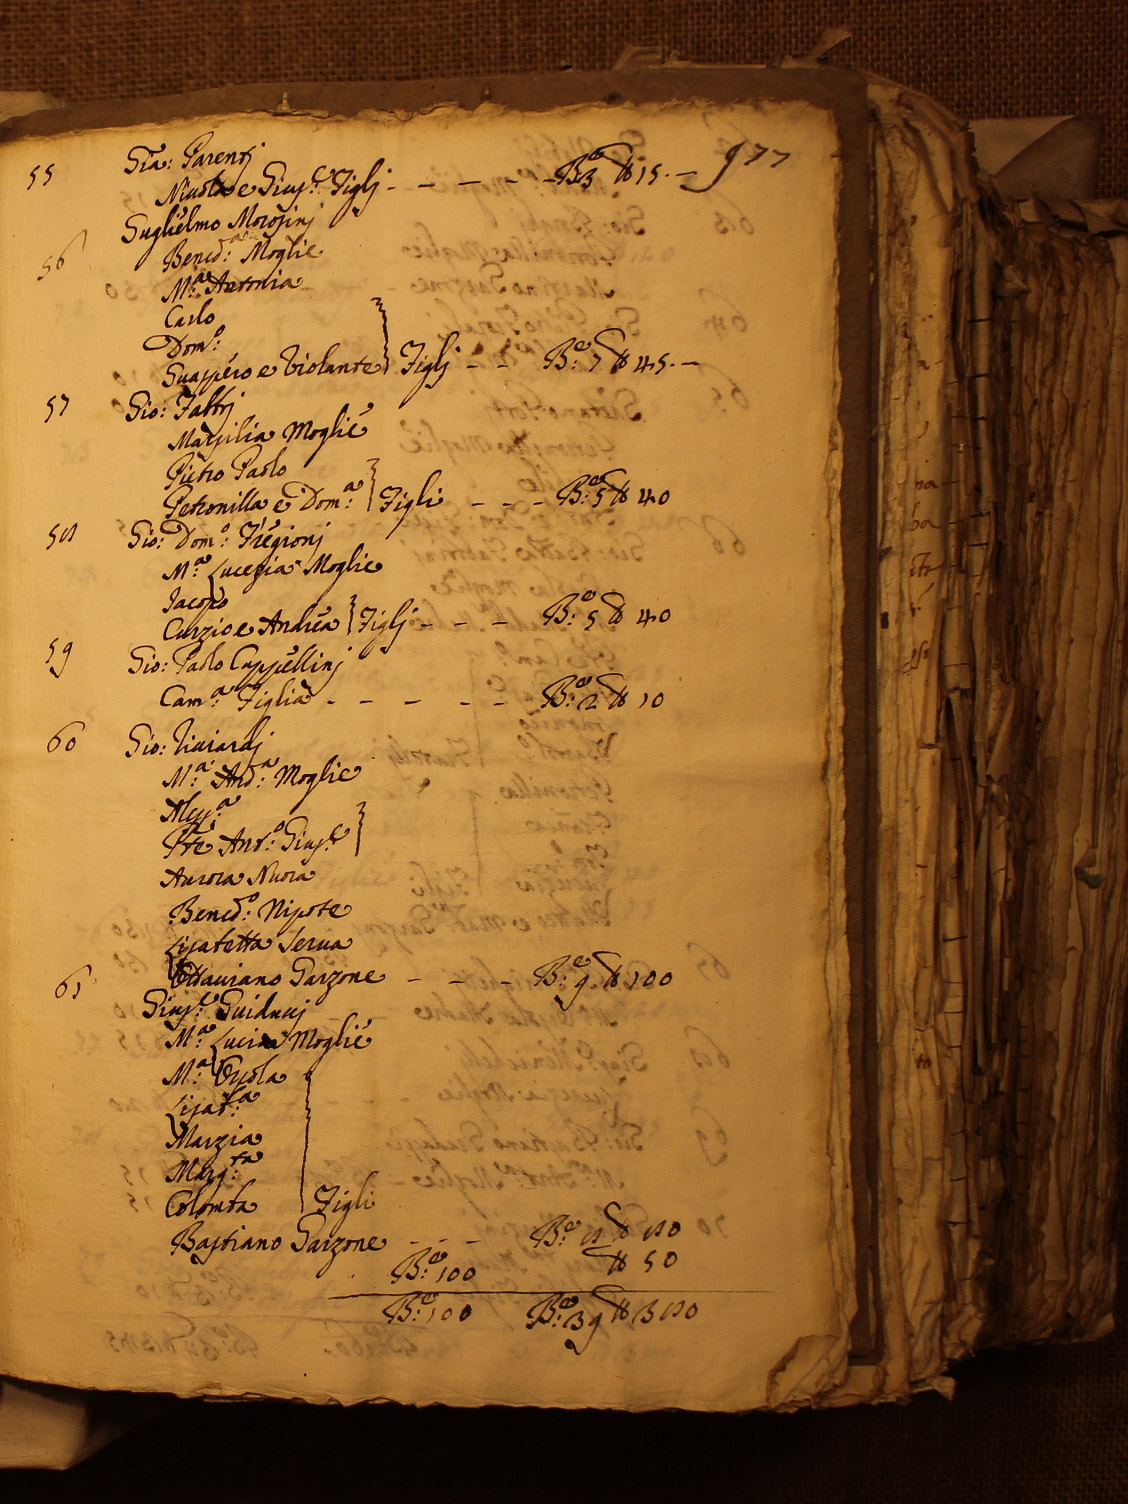 977
55 Gia: Parentj
Nicola e Giusp.e Figlj - - - - B.e 3 ℔ 15. -
56 Guglielmo Morosinj
Bened.a: Moglie
M.a Antonia
Carlo
Dom.o:
Guasparo e Violante Figlj - - B.e: 7 ℔ 45. -
57 Gio: Fabbrj
Marsilia Moglie
Pietro Paolo
Petronilla e Dom.a: Figli - - - B.e: 5 ℔ 40
58 Gio: Dom.o: Fregionj
M.a: Lucrezia Moglie
Jacopo
Curzio e Andrea Figlj - - - B.e: 5 ℔ 40
59 Gio: Paolo Cappellinj
Cam.a: Figlia - - - - - B.e: 2 ℔ 10
60 Gio: Viviardj
M.a: And.a: Moglie
Aless.a:
Pre Ant.o: Giusp.e
Aurora Nuora
Bened.o: Nipote
Lisabetta Serva
Ottaviano Garzone - - - B.e: 9 ℔ 100
61 Giusp.e: Guiduccj
M.a: Lucia Moglie
M.a: Orsola
Lisab.a:
Marzia
Marg.ta:
Colomba Figli
Bastiano Garzone - - - B.e: 8 ℔ 80
B.e: 100 ℔ 50
B.e: 100 B.e: 39 ℔ 380